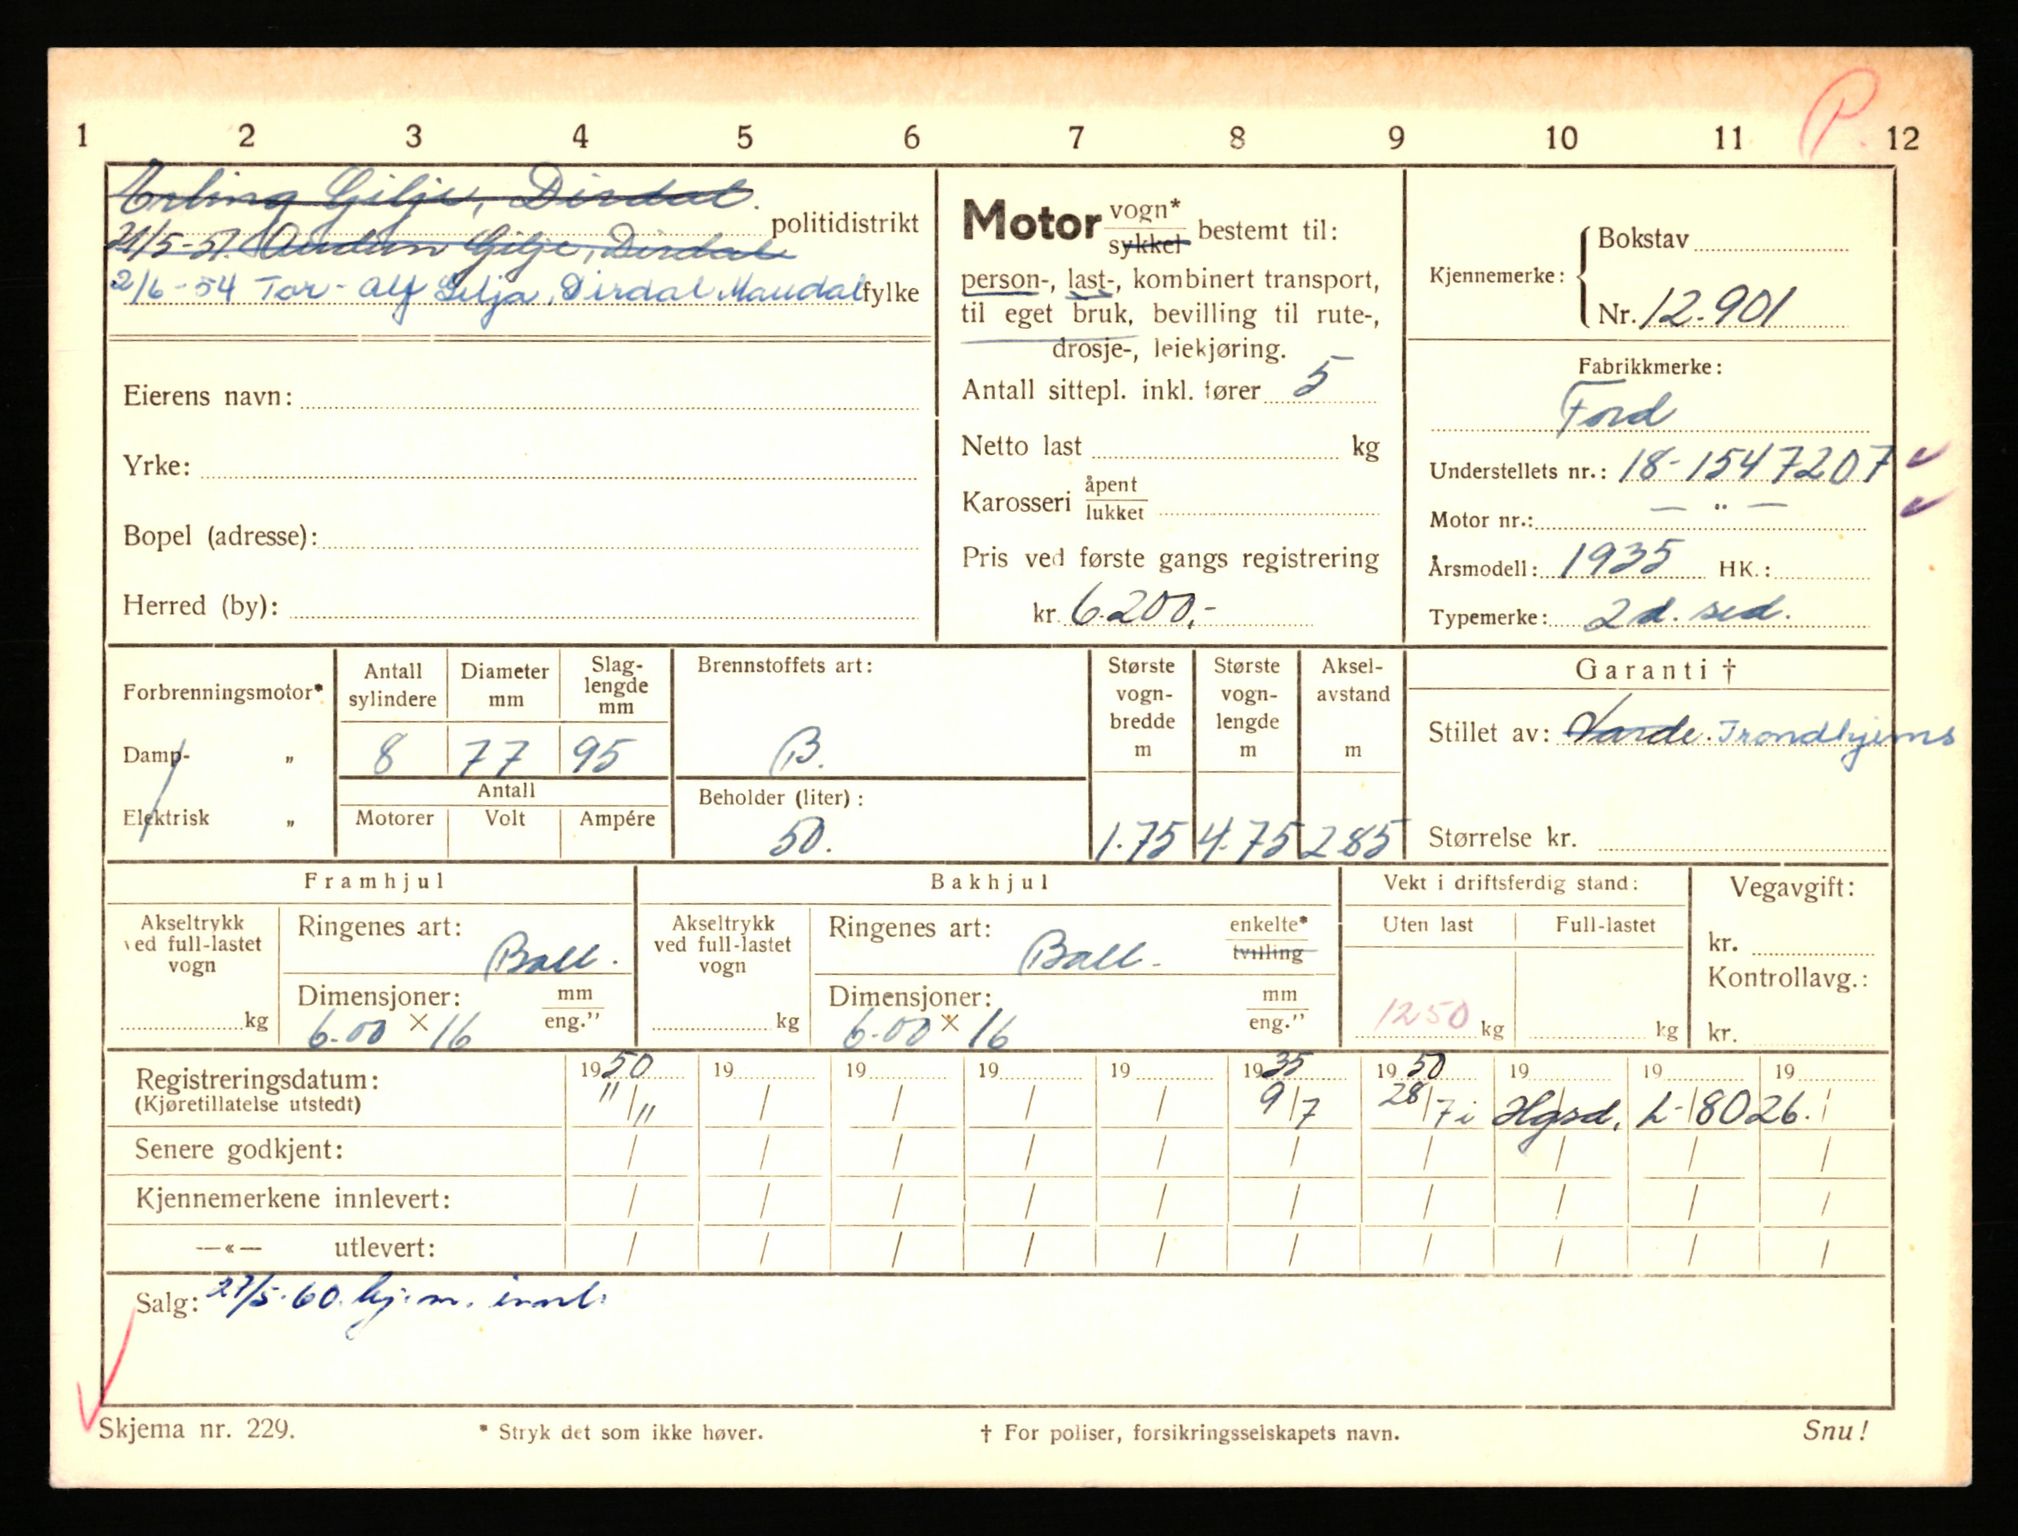 P.
1 2 3 4 5 6 7 8 9 10 11 12
Erling Gilje, Dirdal.
politidistrikt
21/5-51. Audun Gilje, Dirdal
2/6-54 Tor-Alf Gilja, Dirdal Maudal fylke
Eierens navn:
Yrke:
Bopel (adresse):
Herred (by):
Motor vogn* sykkel bestemt til:
person-, last-, kombinert transport,
til eget bruk, bevilling til rute-,
drosje-, leiekjøring.
Antall sittepl. inkl. fører 5
Netto last kg
Karosseri åpent lukket
Pris ved første gangs registrering
kr. 6.200,-
Kjennemerke:
Bokstav
Nr. 12.901
Fabrikkmerke:
Ford
Understellets nr.: 18-1547207
Motor nr.: — " —
Årsmodell: 1935 HK.:
Typemerke: 2d. sed.
Forbrenningsmotor*
Damp- „
Elektrisk „
Antall sylindere
Diameter mm
Slag-lengde mm
8 77 95
Antall
Motorer Volt Ampére
Brennstoffets art:
B.
Beholder (liter):
50.
Største vogn-bredde m
Største vogn-lengde m
Aksel-avstand m
1.75 4.75 285
Garanti †
Stillet av: Varde. Trondhjems
Størrelse kr.
Framhjul
Akseltrykk ved full-lastet vogn
kg
Ringenes art:
Ball.
Dimensjoner: mm eng."
6.00 × 16
Bakhjul
Akseltrykk ved full-lastet vogn
kg
Ringenes art: enkelte* tvilling
Ball.
Dimensjoner: mm eng."
6.00 × 16
Vekt i driftsferdig stand:
Uten last Full-lastet
1250 kg kg
Vegavgift:
kr.
Kontrollavg.:
kr.
Registreringsdatum: 1950 19 19 19 19 1935 1950 19 19 19
(Kjøretillatelse utstedt) "/" / / / / 9/7 28/7 i Hgsd. L-8026.
Senere godkjent: / / / / / / / / / /
Kjennemerkene innlevert: / / / / / / / / / /
—«— utlevert: / / / / / / / / / /
Salg: 27/5-60. kj.m. innl.
Skjema nr. 229.
* Stryk det som ikke høver.
† For poliser, forsikringsselskapets navn.
Snu!